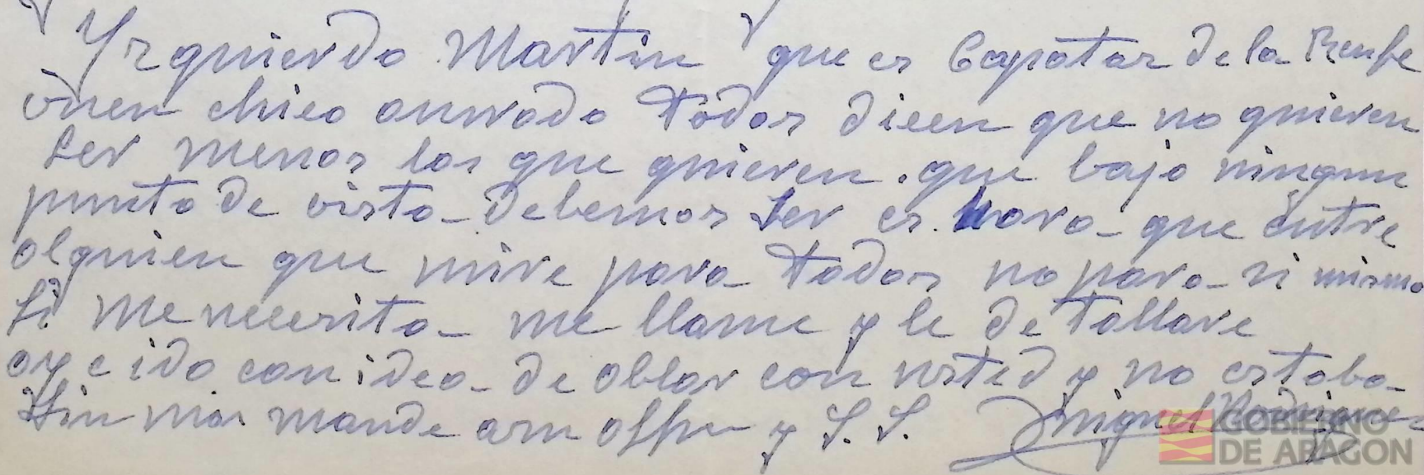 Yzquierdo Martin que es Capataz de la Renfe
vuen chico onrrado todos dicen que no quieren
ser menos los que quieren. que bajo ningun
punto de visto debemos ser es hora que entre
alguien que mire para todos no para si mismo
Si me necesita me llame y le detallare
oy e ido con idea de ablar con usted y no estaba
Sin mas mande a su affmo y S.S. Miguel Rodriguez
GOBIERNO
DE ARAGON